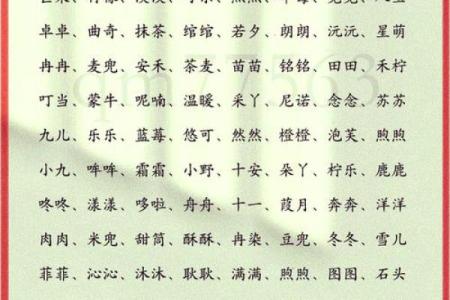 卓卓、曲奇、抹茶、绾绾、若夕、朗朗、沅沅、星萌
冉冉、麦兜、安禾、茶麦、苗苗、铭铭、田田、禾柠
叮当、蒙牛、呢喃、温暖、采丫、尼诺、念念、苏苏
九儿、乐乐、蓝莓、悠可、然然、橙橙、泡芙、煦煦
小九、哞哞、霜霜、小野、十安、朵丫、柠乐、鹿鹿
咚咚、漾漾、哆啦、舟舟、十一、葭月、奔奔、洋洋
肉肉、米兜、甜筒、酥酥、冉染、豆兜、冬冬、雪儿
菲菲、沁沁、沐沐、耿耿、满满、煦煦、图图、石头